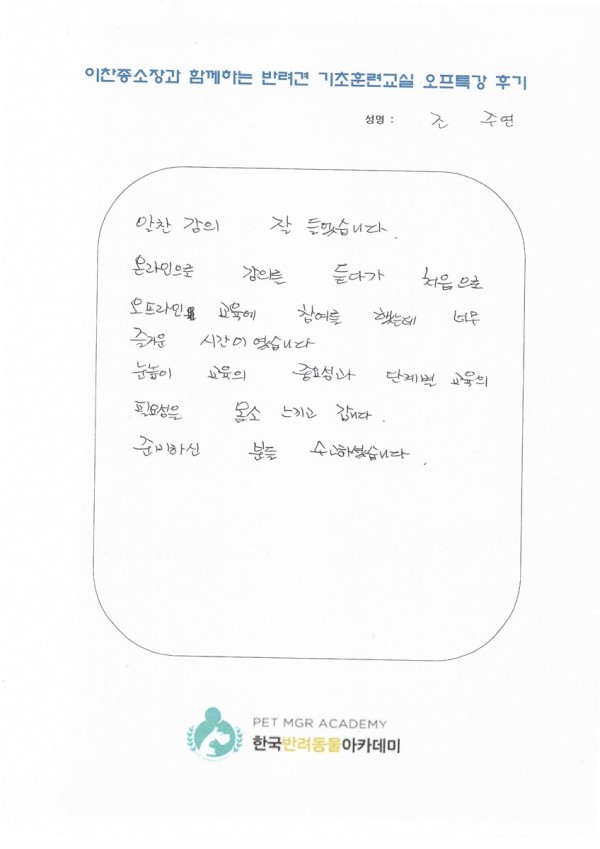 이찬종소장과 함께하는 반려견 기초훈련교실 오프특강 후기
성명 : 조 주연
알찬 강의 잘 들었습니다.
온라인으로 강의를 듣다가 처음으로
오프라인 교육에 참여를 했는데 너무
즐거운 시간이였습니다
눈높이 교육의 중요성과 단계별 교육의
필요성을 몸소 느끼고 갑니다.
준비하신 분들 수고하셨습니다.
PET MGR ACADEMY
한국반려동물아카데미